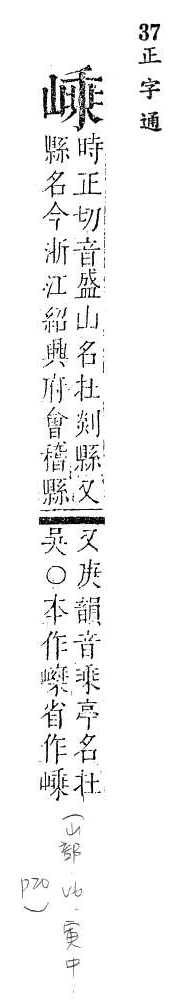 37正字通
嵊
時正切音盛山名在剡縣又
縣名今浙江紹興府會稽縣
又庚韻音乘亭名在
吳○本作𡼼省作嵊
(山部.v6.寅中.
p20)